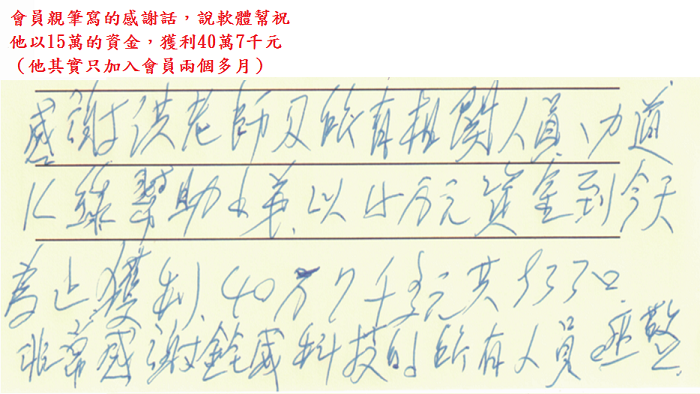 會員親筆寫的感謝話，說軟體幫祝
他以15萬的資金，獲利40萬7千元
（他其實只加入會員兩個多月）
感謝洪老師及所有相關人員，功道
K線幫助小弟，以15万元資金到今天
為止獲利，40万7千多元共
非常感謝銓威科技的所有人員 敬